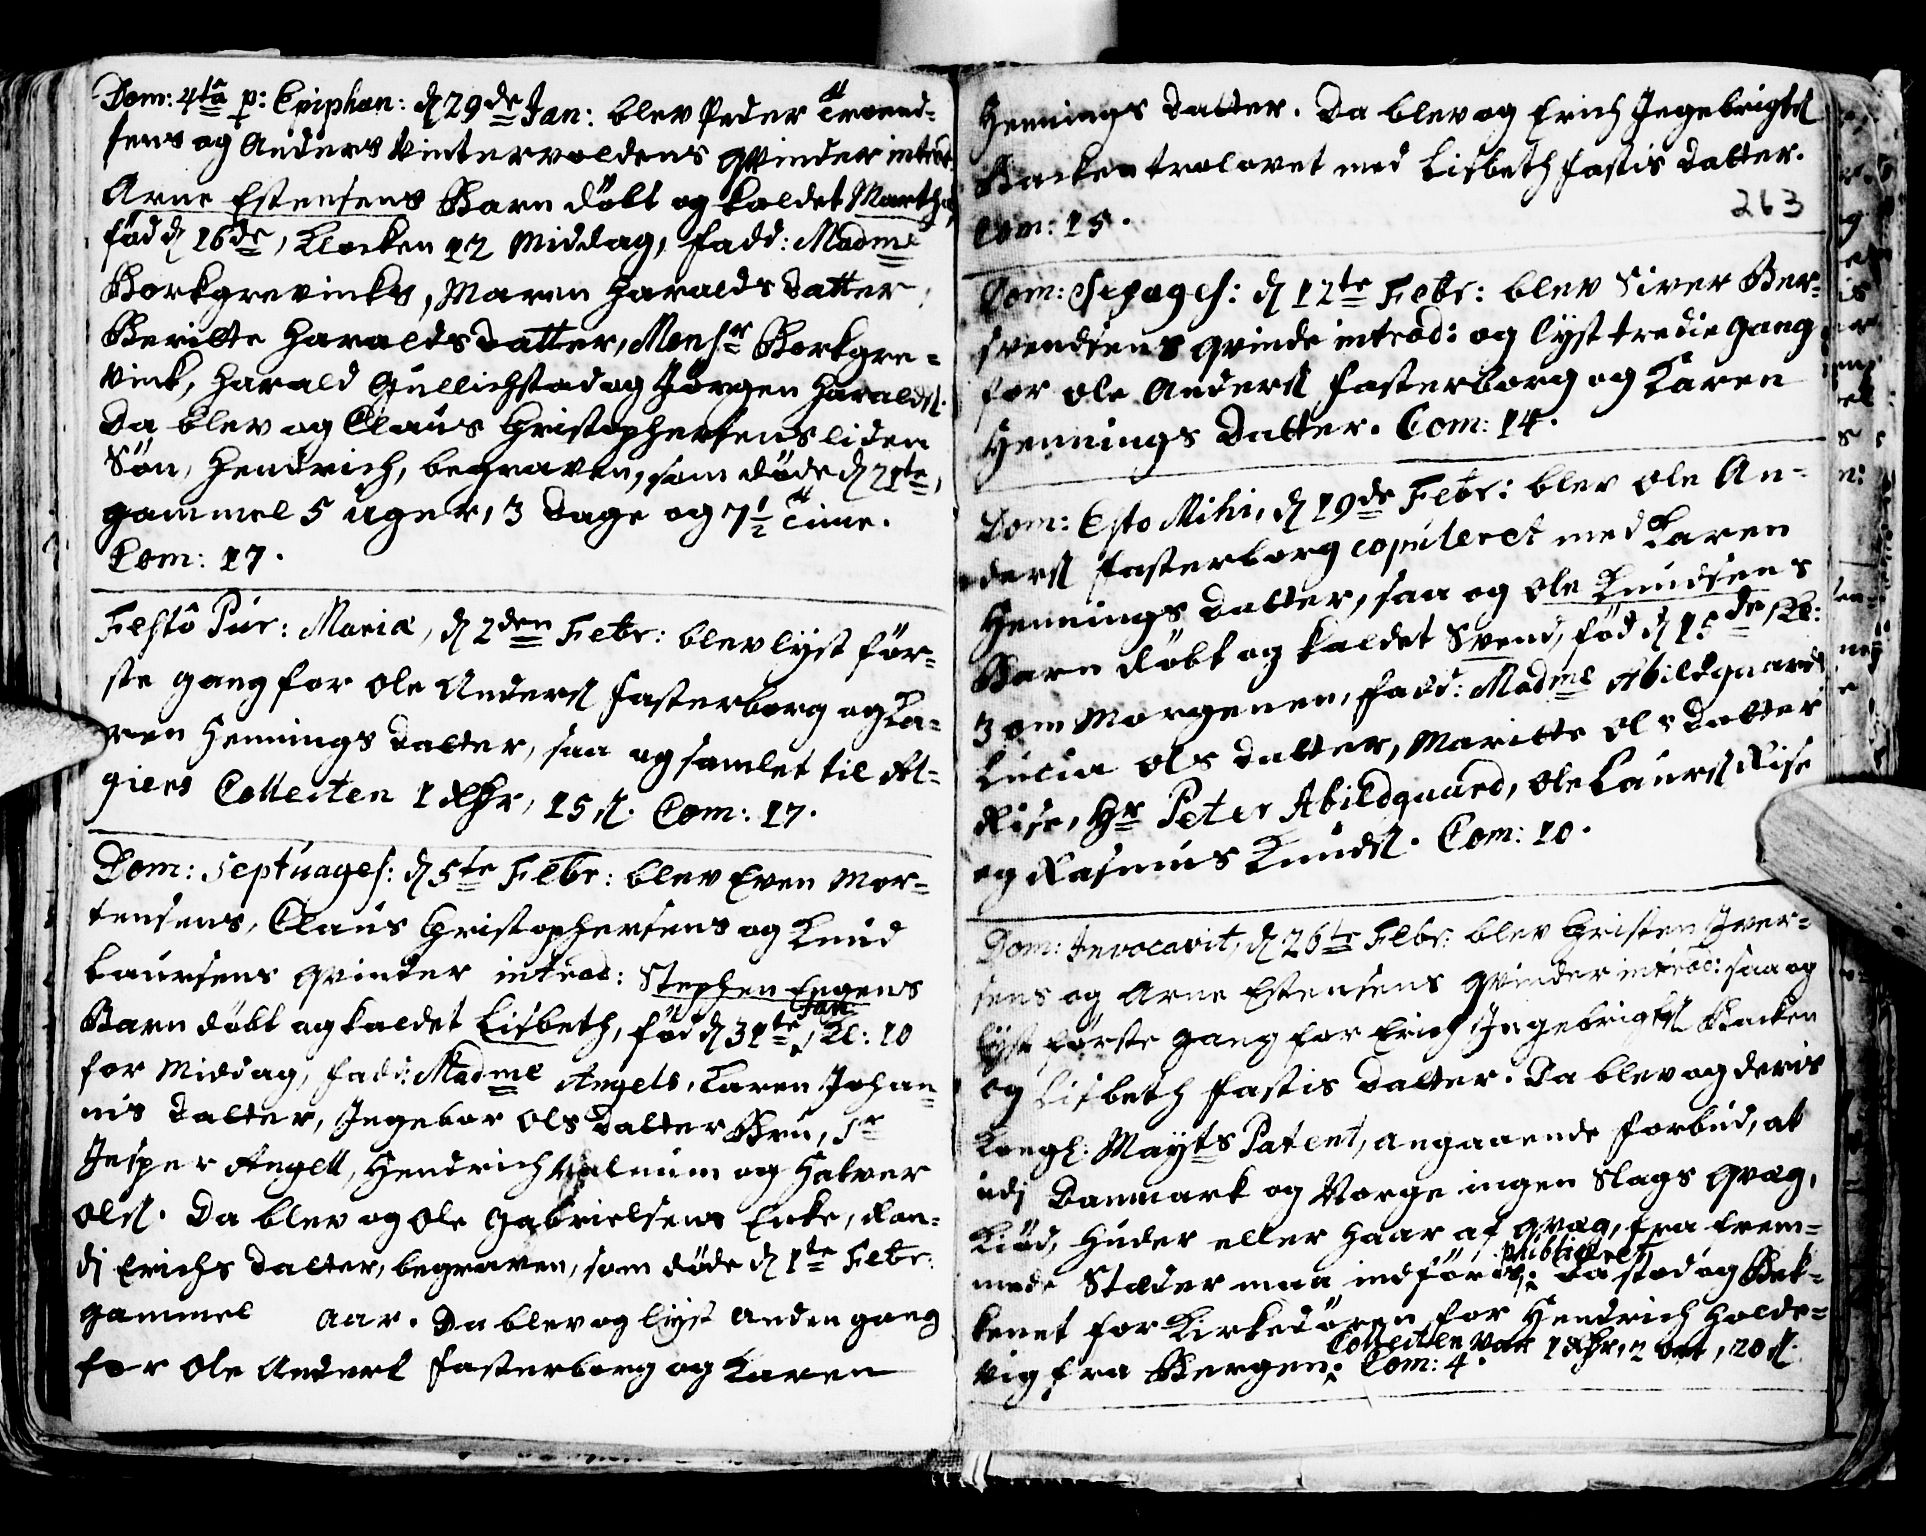 Dom: 4ta p: Epiphan: d 29de Jan: blev Peder Trond-
sens og Anders Vintervoldens Qvinder introd:
Arne Estensens Barn döbt og kaldet Martha,
föd d 16de, Klocken 12 Middag, Fadd: Madme
Borkgrevinks, Maren Haralds Datter,
Beritte Haralds Datter, Monsr Borkgre-
vink, Harald Gullichstad og Jörgen Haralds.
Da blev og Claus Christophersens liden
Sön, Hendrich, begraven, som döde d 21te,
gammel 5 Uger, 3 Dage og 7 1/2 Time.
Com: 17.
Festo Pur: Mariæ, d 2den Febr: blev lystför-
ste gang for Ole Anders Fasterborg og Ka-
ren Hennings Datter, saa og samlet til Al-
giers Collecten 1 Rdr, 15 s. Com: 17.
Dom: Septuages: d 5te Febr: blev Even Mor-
tensens, Claus Christophersens og Knud
Laursens Qvinder introd: Stephen Engens
Barn döbt og kaldet Lisbeth, föd d 31te Jan:, Kl: 10
for Middag, Fadd: Madme Angels, Karen Johan-
nis Datter, Ingebor Ols Datter Bru, Sr
Jesper Angell, Hendrich Valnum og Halvor
Ols. Da blev og Ole Gabrielsens Enke, Ran-
di Erichs Datter, begraven, som döde d 1te Febr:
gammel Aar. Da blev og lyst anden gang
for Ole Anders Fasterborg og Karen
Hennings Datter. Da blev og Erich Ingebrigts
Backen trolovet med Lisbeth Fastis Datter.
263
Com: 15.
Dom: Sexages: d 12te Febr: blev Siver Ber-
svendsens Qvinde introd: og lyst tredie Gang
for Ole Anders Fasterborg og Karen
Hennings Datter. Com: 14.
Dom: Esto Mihi, d 19de Febr: blev Ole An-
ders Fasterborg copuleret med Karen
Hennings Datter, saa og Ole Knudsens
Barn döbt og kaldet Svend, föd d 15de, Kl:
3 om Morgenen, Fadd: Madme Abildgaard
Lucia Ols Datter, Maritte Ols Datter
Rise, Hr Peter Abildgaard, Ole Laurs Rise
og Rasmus Knuds. Com: 10.
Dom: Invocavit, d 26te Febr: blev Christen Iver-
sens og Arne Estensens Qvinder introd: saa og
lyst förste gang for Erich Ingebrigts Backen
og Lisbeth Fastis Datter. Da blev og deris
Kongl: Mayts Patent, angaaende Forbud, at
udj Danmark og Norge ingen Slags Qvæg,
Kiöd, Huder eller Haar af Qvæg, fra frem-
mede Stæder maa indföris, publiceret; Da stod og Bek-
kenet for Kirkedören for Hendrich Holde-
vig fra Bergen; Collecten var 1 Rdr, 2 ort, 20 s. Com: 4.